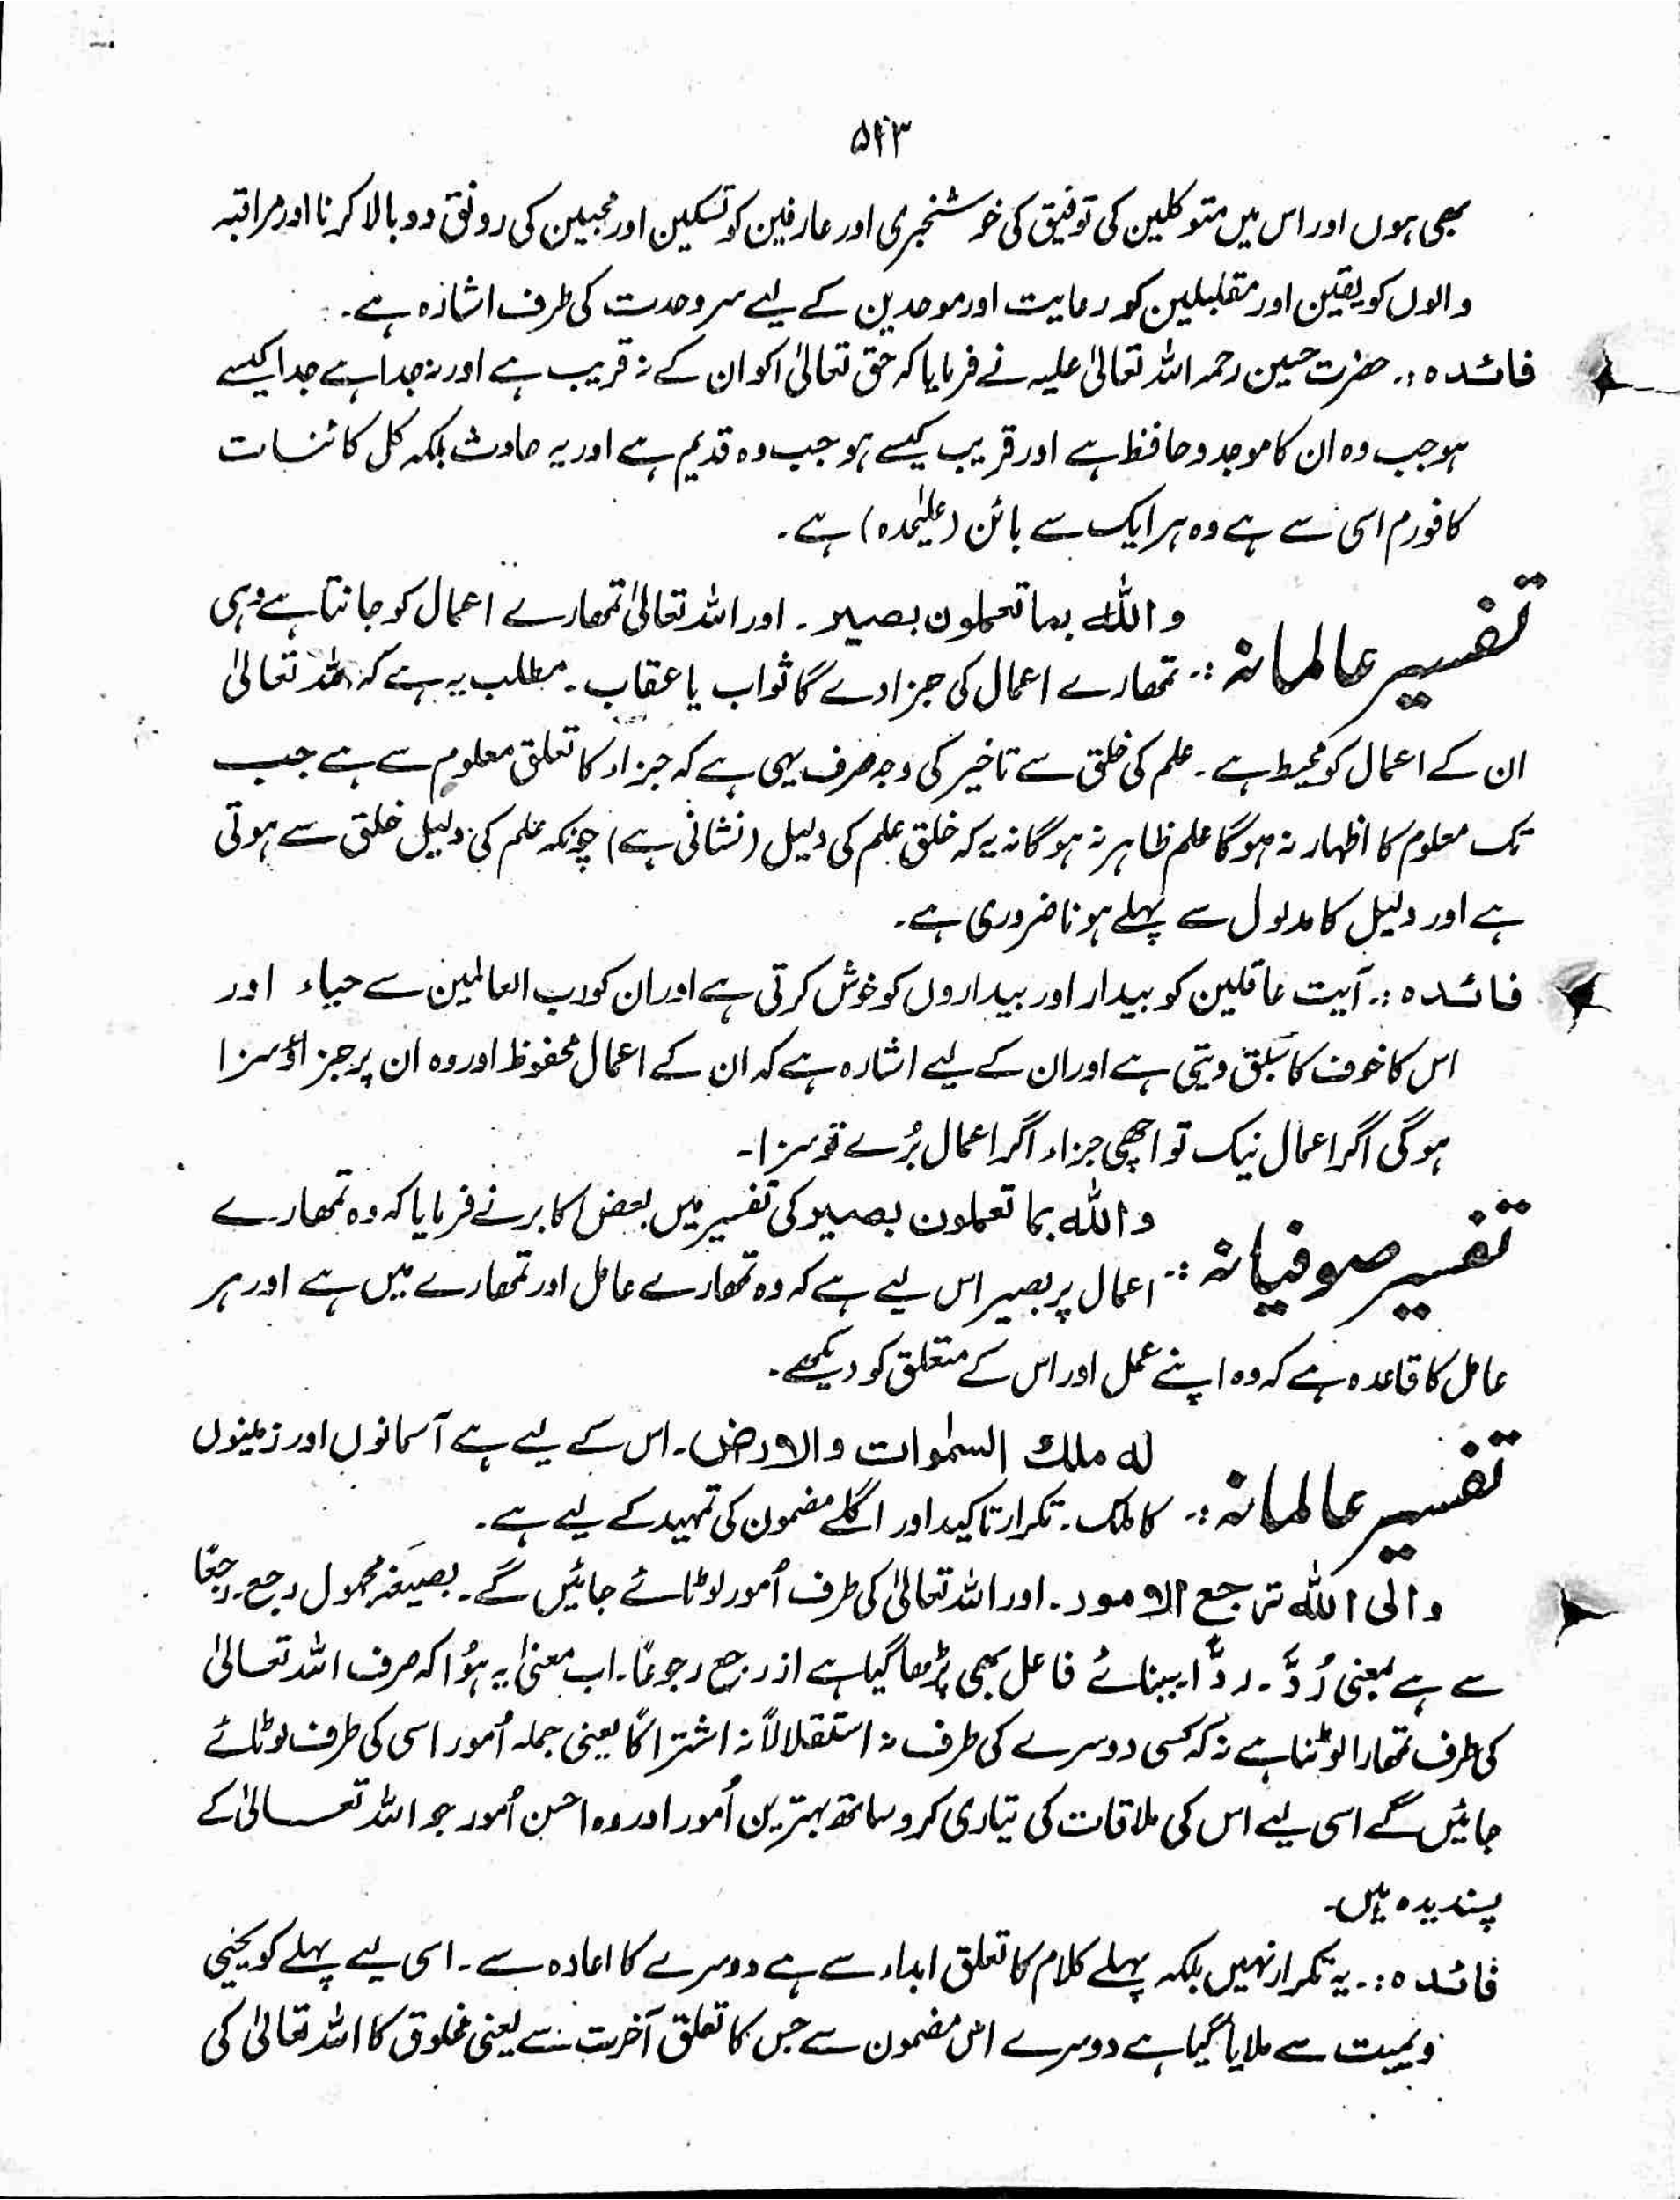 ۵۴۳
بھی ہوں اور اس میں متوکلین کی توفیق کی خوشنجری اور عارفین کو تسکین اور محبین کی رونق دوبالا کرنا اور مراتبہ
والوں کو یقین اور مقلبلین کو رعایت اور موحدین کے لیے سر وحدت کی طرف اشارہ ہے۔
فائدہ :۔ حضرت حسین رحمہ اللہ تعالیٰ علیہ نے فرمایا کہ حق تعالیٰ اکوان کے نہ قریب ہے اور نہ جدا ہے جدا کیسے
ہو جب وہ ان کا موجد و حافظ ہے اور قریب کیسے ہو جب وہ قدیم ہے اور یہ حادث بلکہ کل کائنات
کا فورم اسی سے ہے وہ ہر ایک سے بائن (علیٰحدہ) ہے۔
تفسیر عالمانہ :۔ واللہ بما تعملون بصیر۔ اور اللہ تعالیٰ تمھارے اعمال کو جانتا ہے وہی
تمھارے اعمال کی جزا دے گا ثواب یا عقاب۔ مطلب یہ ہے کہ اللہ تعالیٰ
ان کے اعمال کو محیط ہے۔ علم کی خلق سے تاخیر کی وجہ صرف یہی ہے کہ جزاء کا تعلق معلوم سے ہے جب
تک معلوم کا اظہار نہ ہو گا علم ظاہر نہ ہو گا نہ یہ کہ خلق علم کی دلیل (نشانی ہے) چونکہ علم کی دلیل خلق سے ہوتی
ہے اور دلیل کا مدلول سے پہلے ہونا ضروری ہے۔
فائدہ :۔ آیت غافلین کو بیدار اور بیداروں کو خوش کرتی ہے اور ان کو رب العالمین سے حیاء اور
اس کا خوف کا سبق دیتی ہے اور ان کے لیے اشارہ ہے کہ ان کے اعمال محفوظ اور وہ ان پر جزاؤ سزا
ہوگی اگر اعمال نیک تو اچھی جزاء اگر اعمال بُرے تو سزا۔
تفسیر صوفیانہ :۔ واللہ بما تعملون بصیر کی تفسیر میں بعض اکابر نے فرمایا کہ وہ تمھارے
اعمال پر بصیر اس لیے ہے کہ وہ تمھارے عامل اور تمھارے میں ہے اور ہر
عامل کا قاعدہ ہے کہ وہ اپنے عمل اور اس کے متعلق کو دیکھے۔
تفسیر عالمانہ :۔ لہ ملک السمٰوات والارض۔ اس کے لیے ہے آسمانوں اور زمینوں
کا ملک۔ تکرار تاکید اور اگلے مضمون کی تمہید کے لیے ہے۔
والی اللہ ترجع الامور۔ اور اللہ تعالیٰ کی طرف اُمور لوٹائے جائیں گے۔ بصیغہ مجہول رجع۔ رجعًا
سے ہے بمعنی رُدَّ۔ ردًّا ببنائے فاعل بھی پڑھا گیا ہے از رجع رجوعًا۔ اب معنیٰ یہ ہُوا کہ صرف اللہ تعالیٰ
کی طرف تمھارا لوٹنا ہے نہ کہ کسی دوسرے کی طرف نہ استقلالاً نہ اشتراکًا یعنی جملہ اُمور اسی کی طرف لوٹائے
جائیں گے اسی لیے اس کی ملاقات کی تیاری کرو ساتھ بہترین اُمور اور وہ احسن اُمور جو اللہ تعالیٰ کے
پسندیدہ ہیں۔
فائدہ :۔ یہ تکرار نہیں بلکہ پہلے کلام کا تعلق ابداء سے ہے دوسرے کا اعادہ سے۔ اسی لیے پہلے کو یحیی
ویمیت سے ملایا گیا ہے دوسرے اس مضمون سے جس کا تعلق آخرت سے یعنی مخلوق کا اللہ تعالیٰ کی